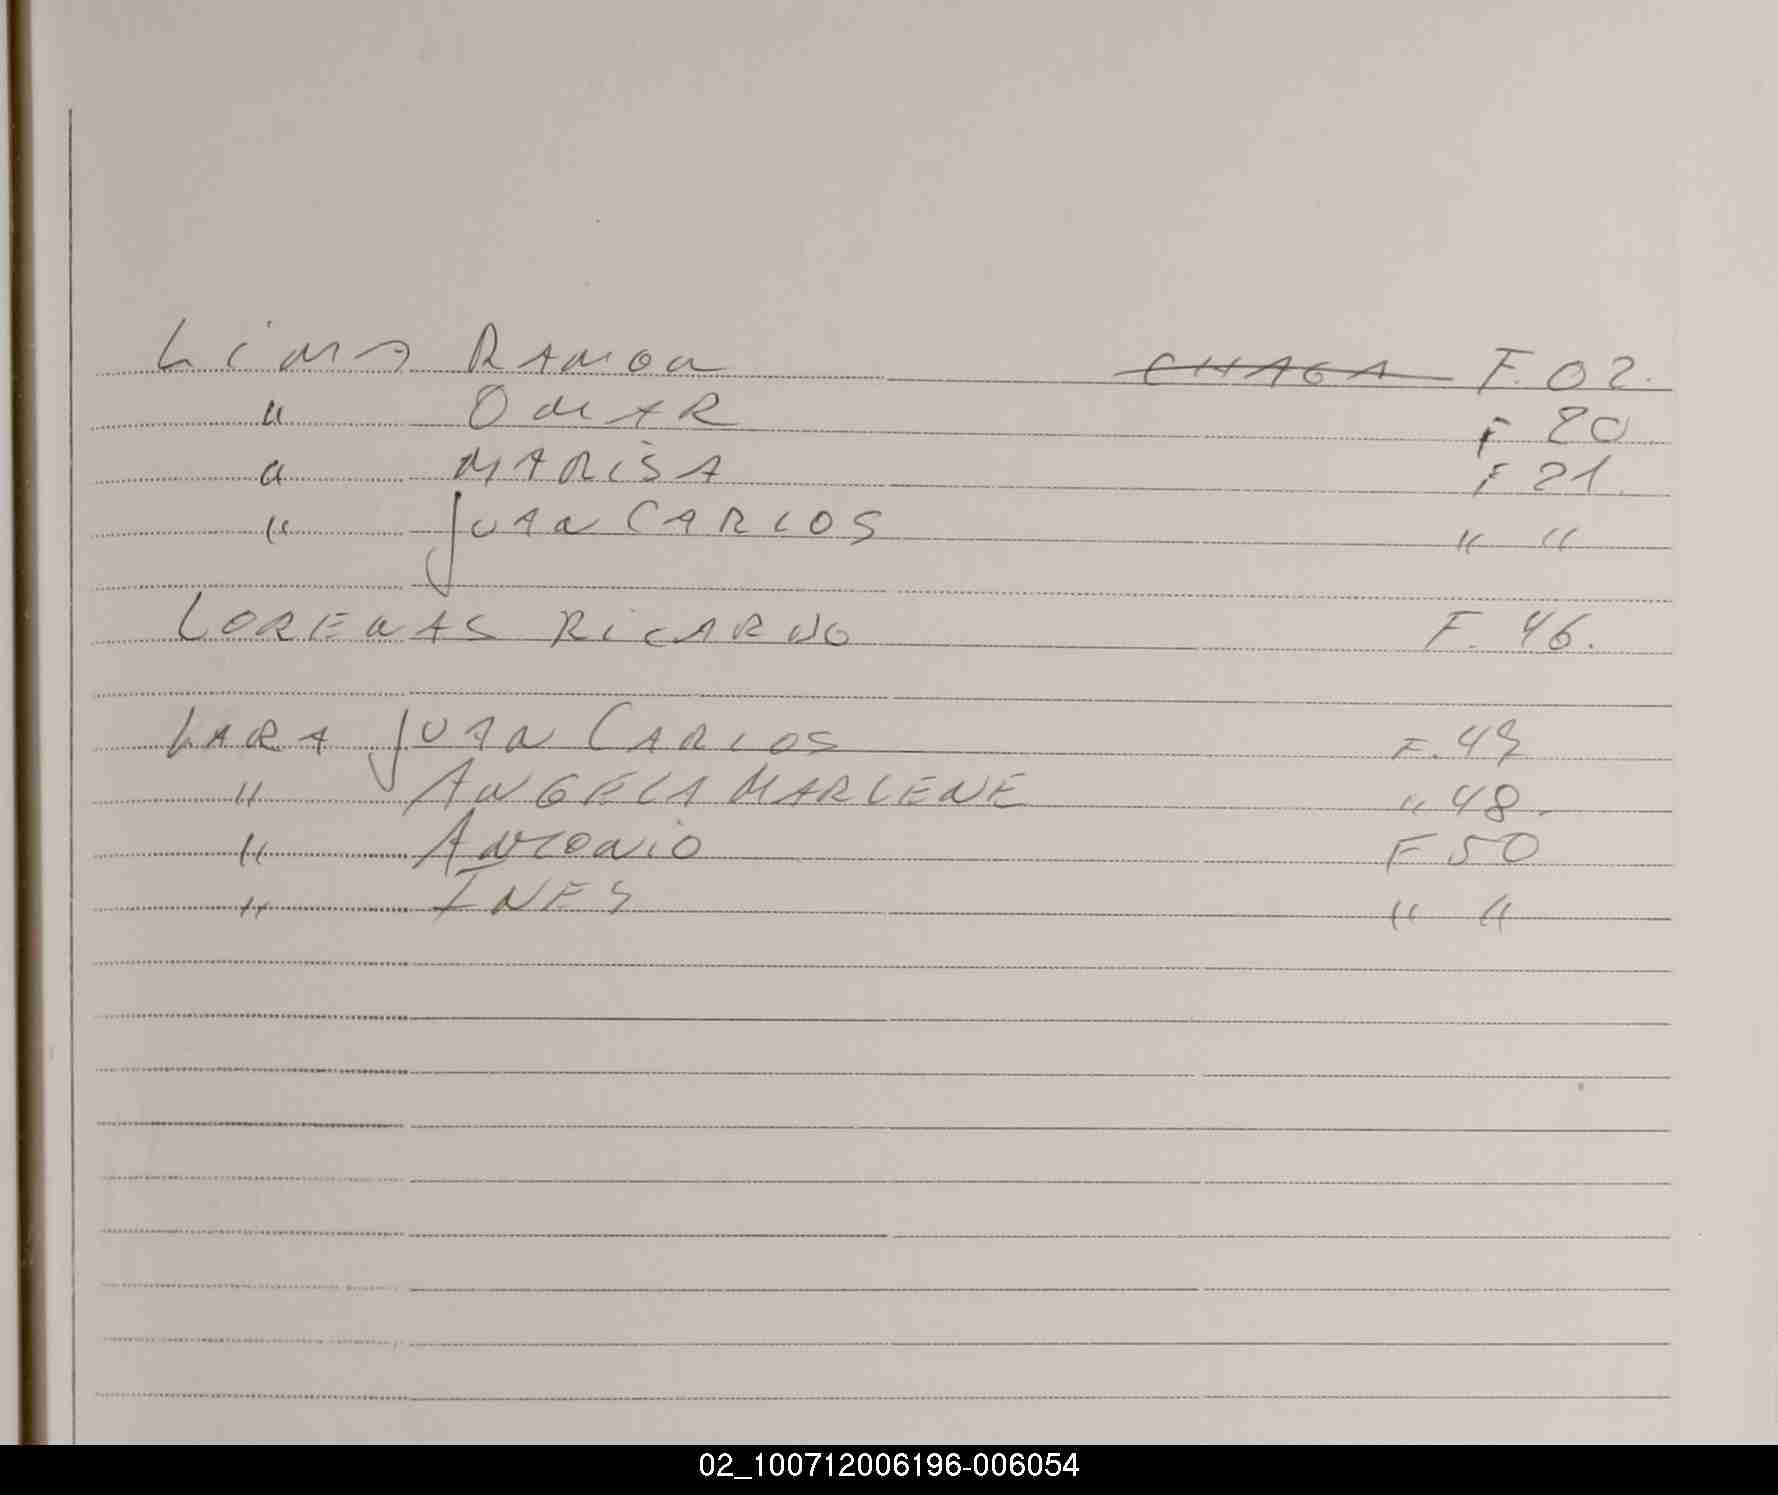 Lima Ramon CHAGA F. 02.
" OMAR F 20
" MARiSA F 21.
" JUAN CARLOS " "
LORENAS RiCARDO F. 46.
LARA JUAN CARLOS F. 49
" ANGELA MARLENE " 48.
" ANTONiO F 50
" INES " "
02_100712006196-006054